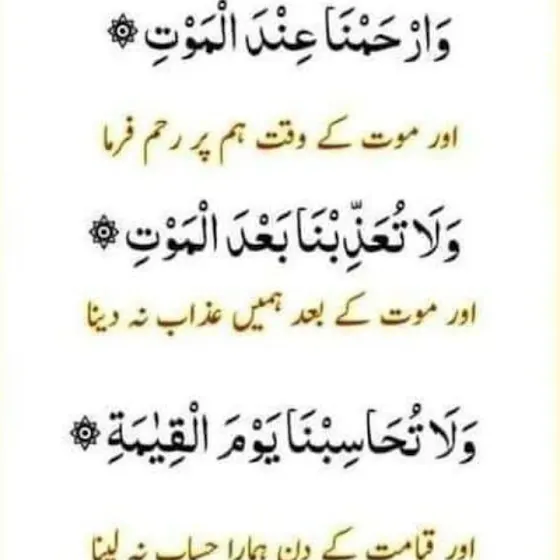 وَارْحَمْنَا عِنْدَ الْمَوْتِ ۞
اور موت کے وقت ہم پر رحم فرما
وَلَا تُعَذِّبْنَا بَعْدَ الْمَوْتِ ۞
اور موت کے بعد ہمیں عذاب نہ دینا
وَلَا تُحَاسِبْنَا يَوْمَ الْقِيٰمَةِ ۞
اور قیامت کے دن ہمارا حساب نہ لینا